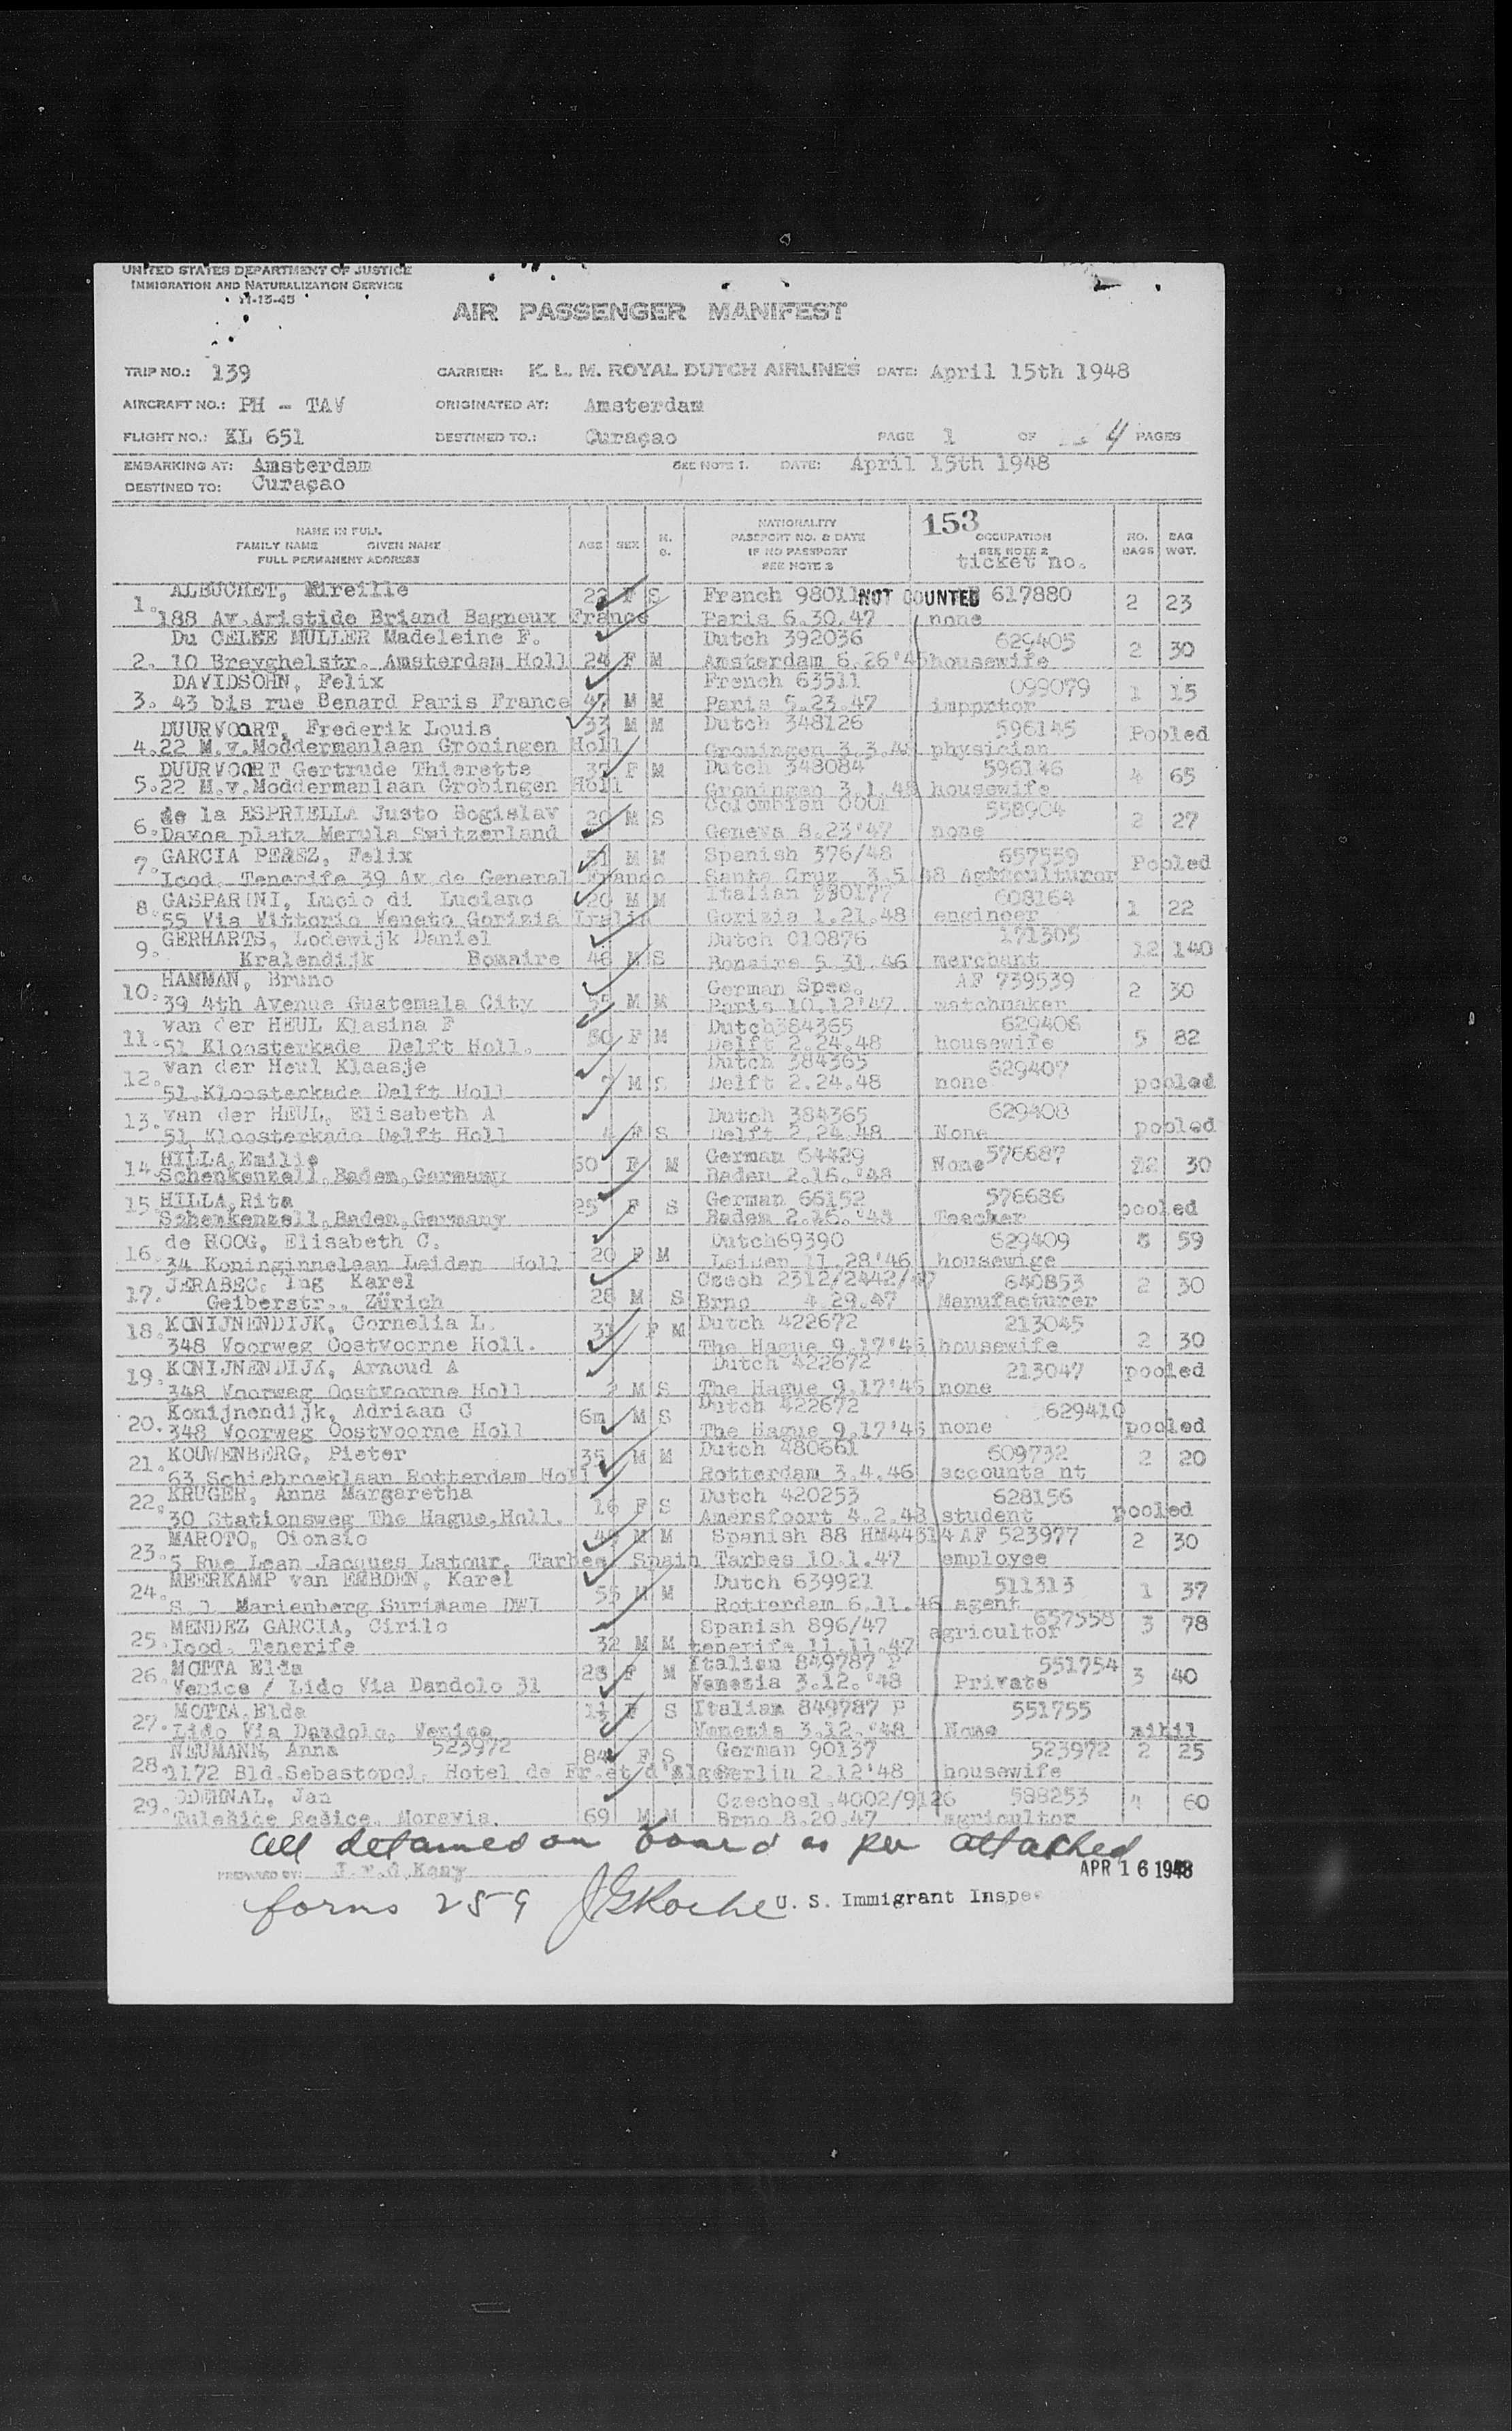 UNITED STATES DEPARTMENT OF JUSTICE
IMMIGRATION AND NATURALIZATION SERVICE
11-15-45
AIR PASSENGER MANIFEST
TRIP NO.: 139 CARRIER: K. L. M. ROYAL DUTCH AIRLINES DATE: April 15th 1948
AIRCRAFT NO.: PH - TAV ORIGINATED AT: Amsterdam
FLIGHT NO.: KL 651 DESTINED TO.: Curaçao PAGE 1 OF 4 PAGES
EMBARKING AT: Amsterdam SEE NOTE 1. DATE: April 15th 1948
DESTINED TO: Curaçao
NAME IN FULL
FAMILY NAME GIVEN NAME
FULL PERMANENT ADDRESS
AGE SEX
NATIONALITY
PASSPORT NO. & DATE
IF NO PASSPORT
SEE NOTE 3
153
OCCUPATION
SEE NOTE 2
ticket no.
NO. BAGS
BAG WGT.
1. ALBUCHET, Mireille F S French NOT COUNTED 617880 2 23
188 Av.Aristide Briand Bagneux France Paris 6.30.47 none
Du CELKE MULLER Madeleine F. Dutch 392036 629405 2 30
2. 10 Breyghelstr. Amsterdam Holl 24 F M Amsterdam 6.26'45 housewife
DAVIDSOHN, Felix French 63511 099079 1 15
3. 43 bis rue Benard Paris France 47 M M Paris 5.23.47 importor
DUURVOORT, Frederik Louis 33 M M Dutch 348126 596145 Pooled
4. 22 M.v.Moddermanlaan Groningen Holl Groningen 3.3.48 physician
DUURVOORT Gertrude Thierette F M Dutch 348084 596146 4 65
5. 22 M.v.Moddermanlaan Grobingen Holl Groningen 3.1.48 housewife
6. de la ESPRIELLA Justo Bogislav 20 M S Colombien 0001 558904 2 27
Davos platz Merula Switzerland Geneva 8.23'47 none
7. GARCIA PEREZ, Felix 51 M M Spanish 376/48 657559 Pooled
Icod. Tenerife 39 Av de General Franco Santa Cruz 3.5 48 Agriculturor
8. GASPARINI, Lucio di Luciano 20 M M Italian 608164 1 22
55 Via Vittorio Veneto Gorizia Italia Gorizia 1.21.48 engineer
9. GERHARTS, Lodewijk Daniel Dutch 010876 171305 12 140
Kralendijk Bonaire 46 M S Bonaire 5.31.46 merchant
10. HAMMAN, Bruno German Spec. AF 739539 2 30
39 4th Avenue Guatemala City 55 M M Paris 10.12'47 watchmaker
11. van der HEUL Klasina F 30 F M Dutch384365 629406 5 82
51 Kloosterkade Delft Holl. Delft 2.24.48 housewife
12. van der Heul Klaasje 7 M S Dutch 384365 629407 pooled
51.Kloosterkade Delft Holl Delft 2.24.48 none
13. van der HEUL, Elisabeth A Dutch 384365 629408 pooled
51 Kloosterkade Delft Holl 4 F S Delft 2.24.48 None
14. HILLA,Emilie 50 F M German 64429 None 576687 2 30
Schenkenzell,Baden,Germany Baden 2.16.'48
15 HILLA,Rita 25 F S German 66152 576686 pooled
Schenkenzell,Baden,Germany Baden 2.16.'48 Teacher
16. de HOOG, Elisabeth C. 20 F M Dutch69390 629409 59
34 Koninginnelaan Leiden Holl Leiden 11.28'46 housewige
17. JERABEC, Ing Karel 28 M S Czech 2312/2442/47 640853 2 30
Geiberstr., Zürich Brno 4.29.47 Manufacturer
18. KONIJNENDIJK, Cornelia L. 31 F M Dutch 422672 213045 2 30
348 Voorweg Oostvoorne Holl. The Hague 9.17'46 housewife
19. KONIJNENDIJK, Arnoud A Dutch 422672 213047 pooled
348 Voorweg Oostvoorne Holl 2 M S The Hague 9.17'46 none
20. Konijnendijk, Adriaan C 6m M S Dutch 422672 629410 pooled
348 Voorweg Oostvoorne Holl The Hague 9.17'46 none
21. KOUWENBERG, Pieter 35 M M Dutch 480661 609732 2 20
63 Schiebroeklaan Rotterdam Holl Rotterdam 3.4.46 accounta nt
22. KRUGER, Anna Margaretha 16 F S Dutch 420253 628156 pooled
30 Stationsweg The Hague,Holl. Amersfoort 4.2.48 student
23. MAROTO, Oionsio 49 M M Spanish 88 HM44614 AF 523977 2 30
5 Rue Lean Jacques Latour. Tarbes Spain Tarbes 10.1.47 employee
24. MEERKAMP van EMBDEN, Karel 55 M M Dutch 639921 511313 1 37
S J Marienberg Suriname DWI Rotterdam 6.11.46 agent
25. MENDEZ GARCIA, Cirilo Spanish 896/47 agricultor 657558 3 78
Icod. Tenerife 32 M M tenerife 11.11.47
26. MOTTA Elda 28 F M Italian 849787 P 551754 3 40
Venice / Lido Via Dandolo 31 Venezia 3.12.'48 Private
27. MOTTA,Elda F S Italian 849787 P 551755
Lido Via Dandolo, Venice Venezia 3.12.'48 None nihil
28. NEUMANN, Anna 523972 84 F S German 90137 523972 2 25
1172 Bld.Sebastopol. Hotel de Fr.et d'Alger Berlin 2.12'48 housewife
29. ODEHNAL, Jan Czechosl.4002/9126 588253 4 60
Tulešice Rešice, Moravia. 69 M M Brno 8.20.47 agricultor
All detained on board as per attached
PREPARED BY: APR 16 1948
forms 259 JGRoche U. S. Immigrant Inspe